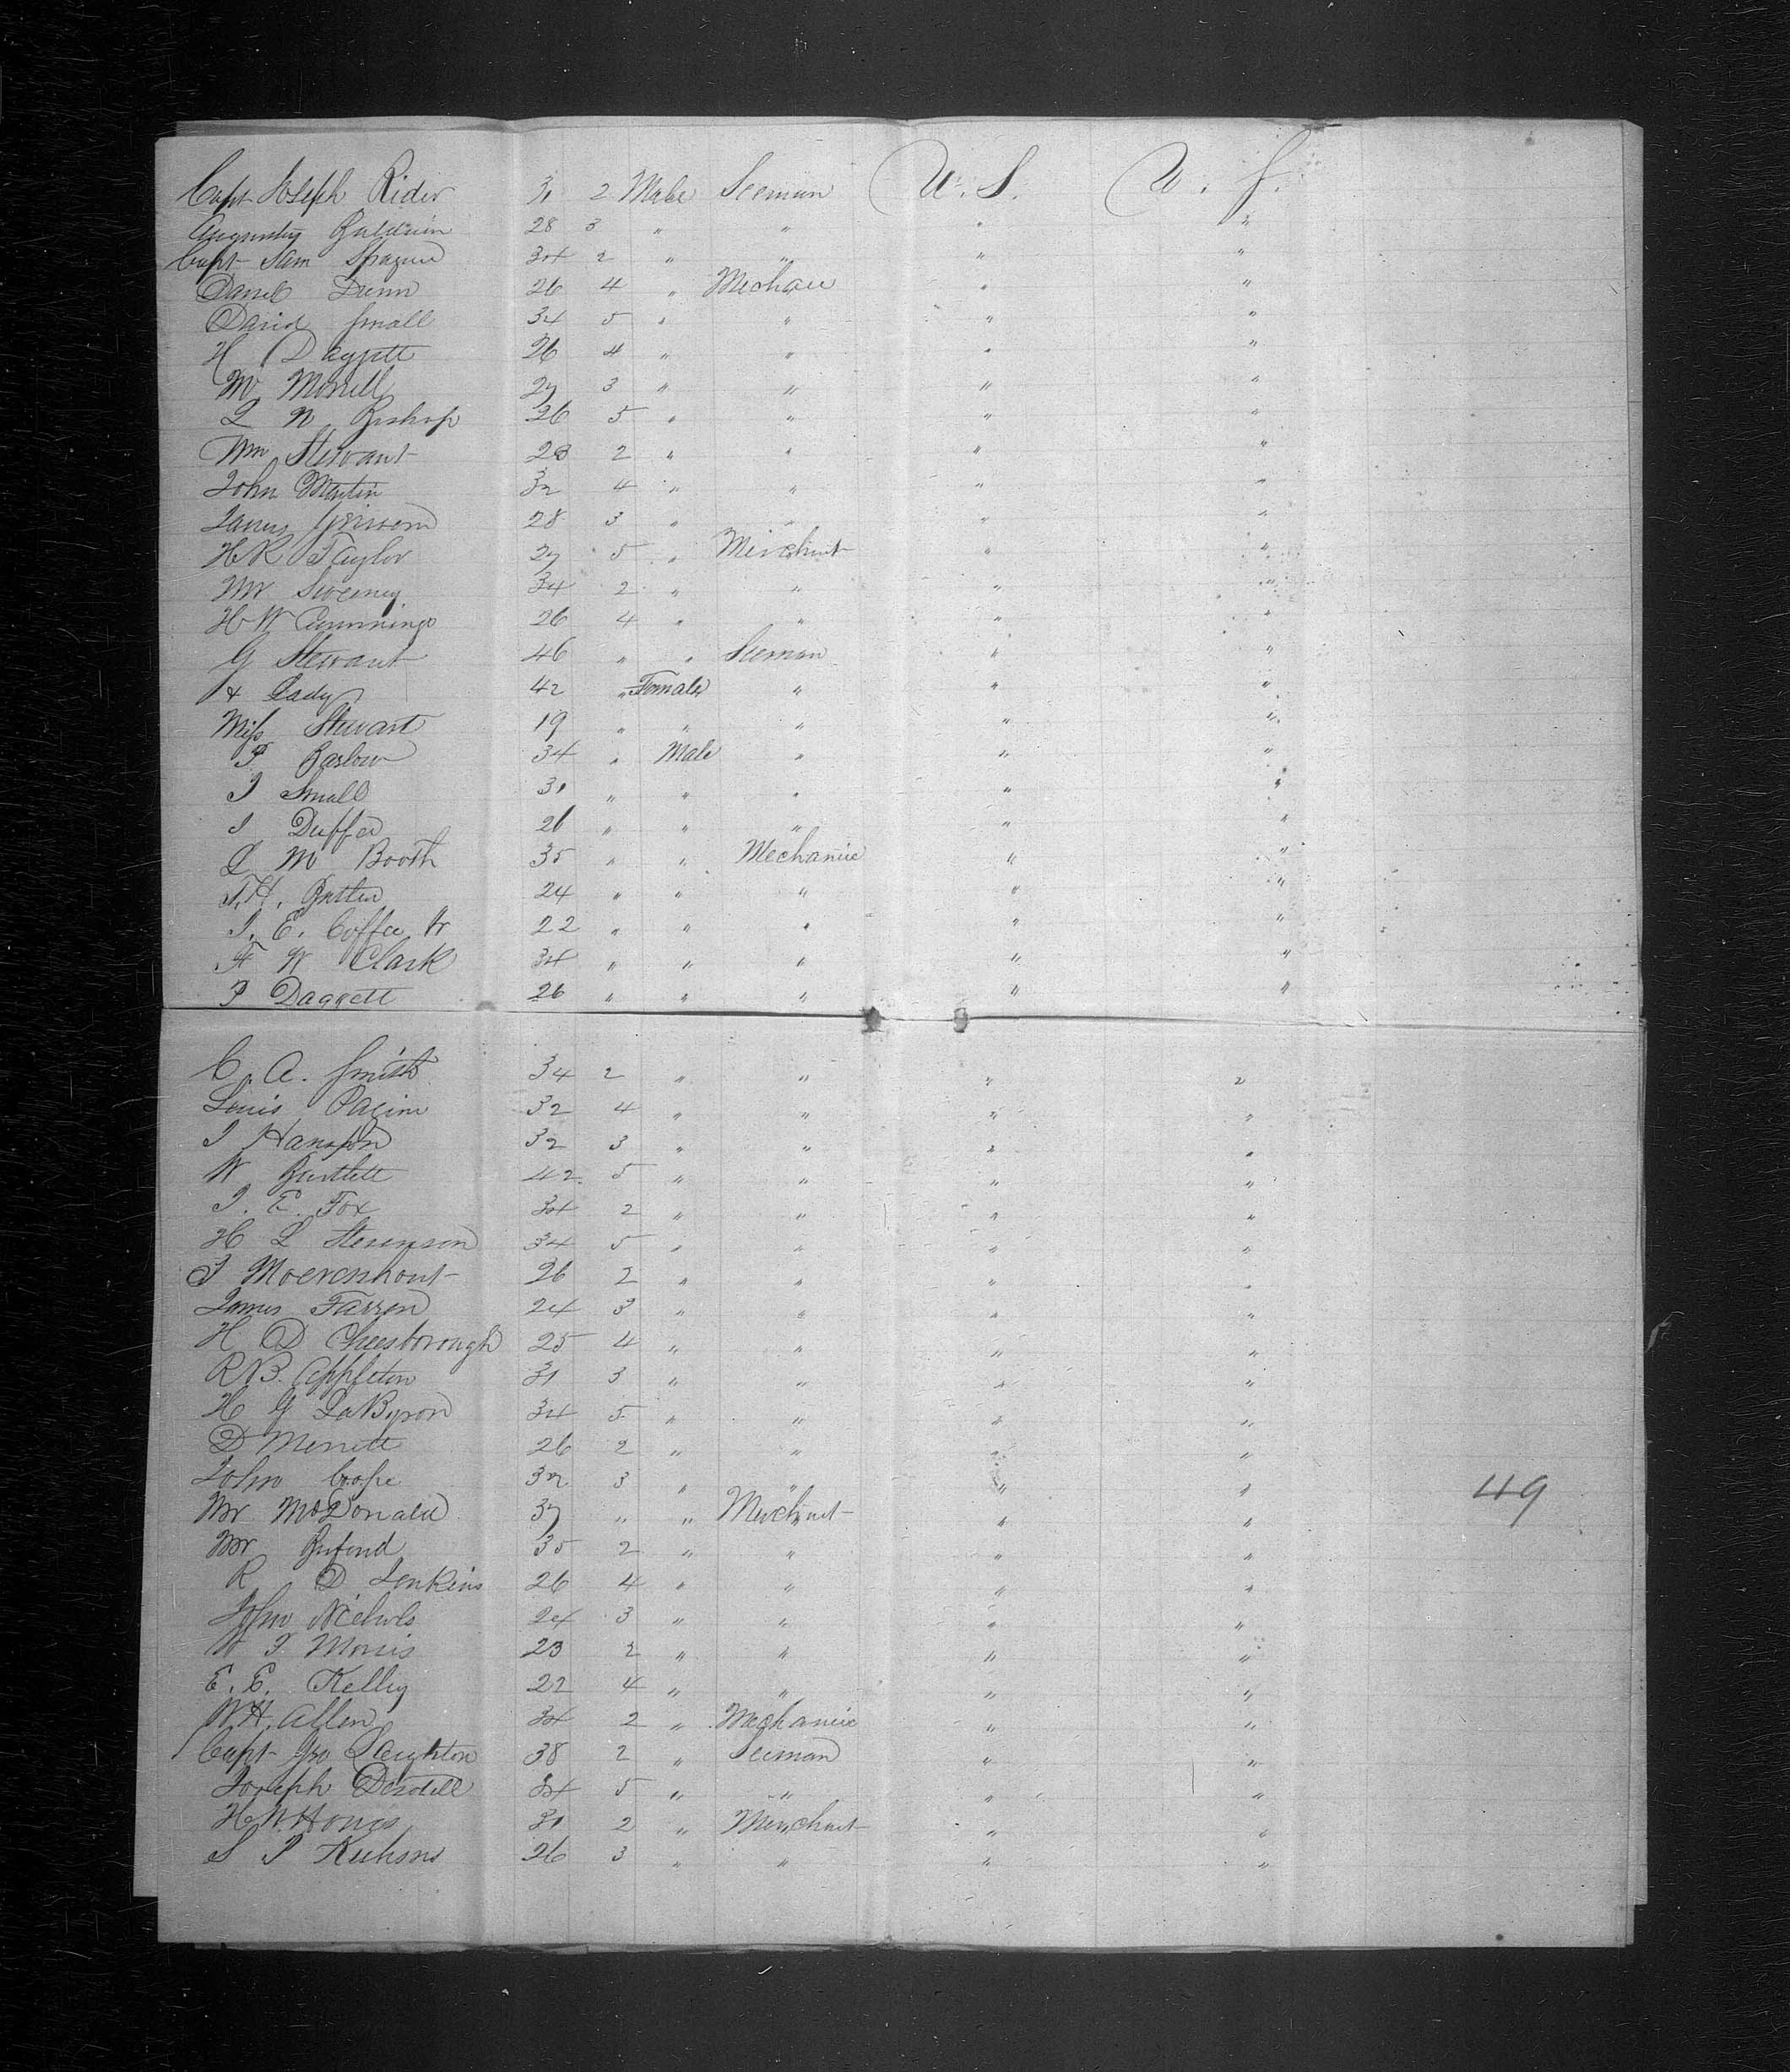 Capt Joseph Rider 31 2 Male Seeman U. S. U. S.
Baldwin 28 3 " " " "
Capt Sam Spague 34 2 " " " "
Daniel Dunn 26 4 " Mechaic " "
David Small 34 5 " " " "
H Daggett 26 4 " " " "
Mr Morrell 27 3 " " " "
L N Bishop 26 5 " " " "
Wm Stewart 28 2 " " " "
John Martin 32 4 " " " "
James Grissom 28 3 " " " "
H R Taylor 27 5 " Merchant " "
Mr Sweeney 34 2 " " " "
H W Cummings 26 4 " " " "
G Stewart 46 " " Seeman " "
& Lady 42 " Female " " "
Miss Stewart 19 " " " " "
P Barlow 34 " Male " " "
J Small 31 " " " " "
J Duffer 26 " " " " "
L M Booth 35 " " Mechanic " "
T. H. Butler 24 " " " " "
J. E. Coffee Jr 22 " " " " "
F W Clark 34 " " " " "
P Daggett 26 " " " " "
C. A. Smith 34 2 " " " "
Louis Pacini 32 4 " " " "
J Hanson 32 3 " " " "
W Bartlett 42 5 " " " "
J. E. Fox 34 2 " " " "
H L Stevenson 34 5 " " " "
J Moerenhout 26 2 " " " "
James Farren 24 3 " " " "
H D Cheesborough 25 4 " " " "
R B. Appleton 31 3 " " " "
H G LaByron 34 5 " " " "
D Merritt 26 2 " " " "
John Cope 32 3 " " " "
Mr McDonald 37 " " Merchant " "
Mr Buford 35 2 " " " "
R D Jenkins 26 4 " " " "
John Nichols 24 3 " " " "
W J Morris 23 2 " " " "
E. E. Kelley 22 4 " " " "
W H Allen 34 2 " Mechanic " "
Capt Geo Leighton 38 2 " Seeman " "
Joseph 34 5 " " " "
H W 31 2 " Merchant " "
S P 26 3 " " " "
49